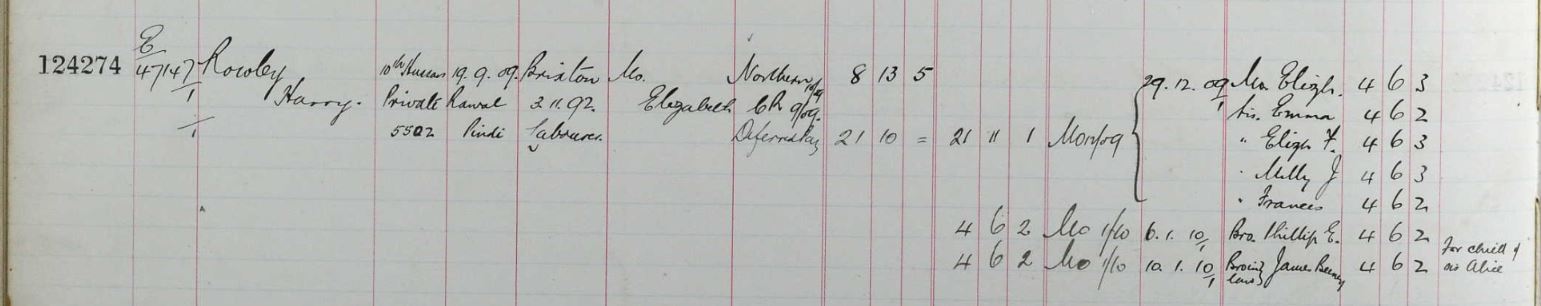 E
124274 47147/1 Rowley 10th Hussars 19. 9. 09. Brixton Mo. Northern 8 13 5 29. 12. 09/1 Mo. Eligh. 4 6 3
Harry. Private Rawal 2 11. 92. Elizabeth C.R. 9/09. Sis. Emma 4 6 2
5502 Pindi Labourer. Deferred Pay 21 10 = 21 11 1 Mo 11/09 " Eligh F. 4 6 3
" Milly J 4 6 3
" Frances 4 6 2
4 6 2 Mo 1/10 6. 1. 10/1 Bro. Phillip E. 4 6 2
4 6 2 Mo 1/10 10. 1. 10/1 Bro in law James 4 6 2 For child of sis Alice